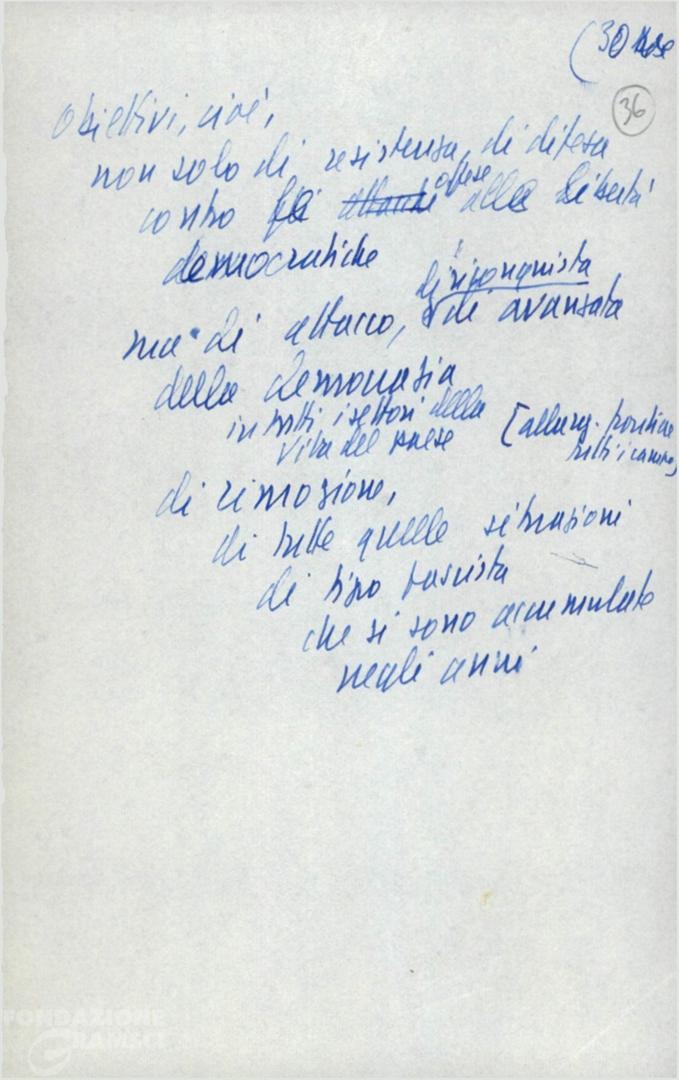 (30
36
obiettivi, cioè,
non solo di resistenza, di difesa
offese
contro gli attacchi alle libertà
democratiche
di riconquista
ma di attacco, di avanzata
della democrazia
in tutti i settori della
vita del paese
[allarg. fronti
tutti i
di rimozione,
di tutte quelle situazioni
di tipo fascista
che si sono accumulate
negli anni
FONDAZIONE
GRAMSCI